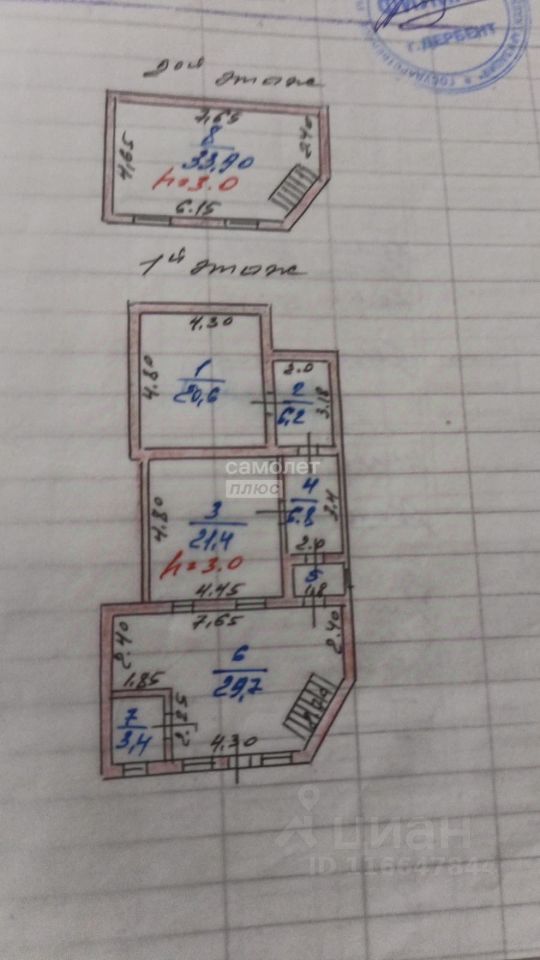 г. ДЕРБЕНТ
2ой этаж
7,65
4,65
8
33,90
2,40
h=3.0
6.15
1й этаж
4.30
4.80
1
20,6
2.0
2
6,2
3.18
самолет
плюс
4.80
3
21,4
4
6.8
3,4
h=3.0
2.0
4.45
5
1.8
7,65
2.40
2.40
6
29,7
1.85
7
3,4
2.25
4.30
циан